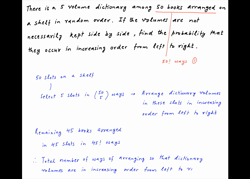 There is a 5 volume dictionary among 50 books arranged on
a shelf in random order. If the volumes are not
necessarily kept side by side, find the probability that
they occur in increasing order from left to right.
50! ways
50 slots on a shelf
Select 5 slots in (50 5) ways → Arrange dictionary volumes
in these slots in increasing
order from left to right
Remaining 45 books arranged
in 45 slots in 45! ways
∴ Total number of ways of arranging so that dictionary
volumes are in increasing order from left to